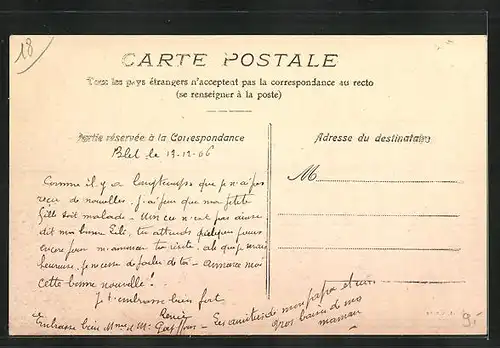 18
CARTE POSTALE
Tous les pays étrangers n'acceptent pas la correspondance au recto
(se renseigner à la poste)
Partie réservée à la Correspondance
Adresse du destinataire
Blet le 13-12-06
M
Comme il y a longtemps que je n'ai pas
reçu de nouvelles. J'ai peur que ma petite
fille soit malade - n'est pas ainsi
dit ma bonne tu attends quelques jours
encore pour m'annoncer ta visite. ah que je serais
heureuse, je ne cesse de parler de toi - annonce moi
cette bonne nouvelle!
Je t'embrasse bien fort
Renée
Embrasse bien Mme et Mr - Les amitiés de mon papa et un
gros baiser de ma
maman
9.-